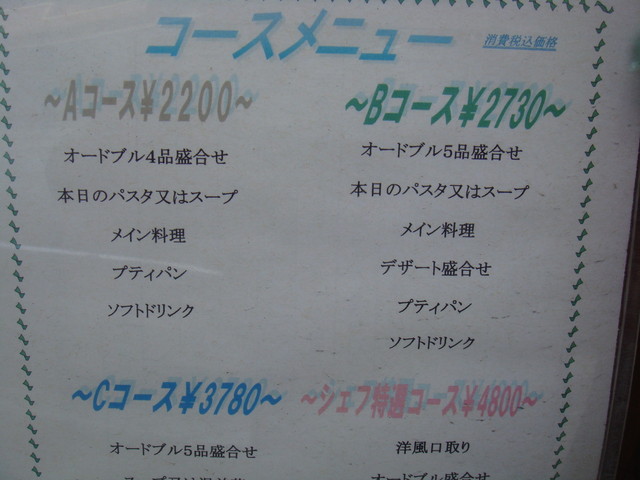 コースメニュー 消費税込価格
～Aコース¥2200～
オードブル4品盛合せ
本日のパスタ又はスープ
メイン料理
プティパン
ソフトドリンク
～Bコース¥2730～
オードブル5品盛合せ
本日のパスタ又はスープ
メイン料理
デザート盛合せ
プティパン
ソフトドリンク
～Cコース¥3780～
オードブル5品盛合せ
～シェフ特選コース¥4800～
洋風口取り
オードブル盛合せ